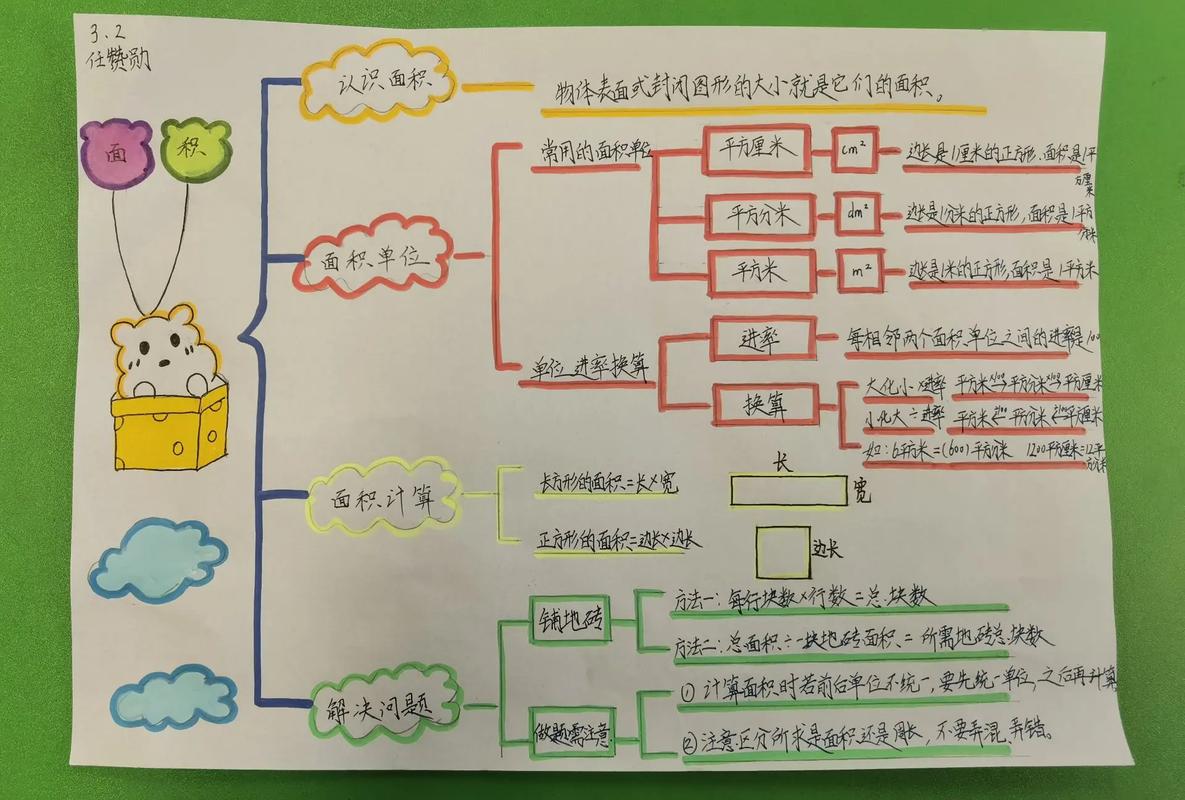 3.2
任赞勋
面 积
认识面积
物体表面或封闭图形的大小就是它们的面积。
面积单位
常用的面积单位
平方厘米 cm² 边长是1厘米的正方形,面积是1平
方厘米
平方分米 dm² 边长是1分米的正方形,面积是1平方
分米
平方米 m² 边长是1米的正方形,面积是1平方米
单位进率换算
进率 每相邻两个面积单位之间的进率是100
换算
大化小 ×进率 平方米 ×100→ 平方分米 ×100→ 平方厘米
小化大 ÷进率 平方米 ←÷100 平方分米 ←÷100 平方厘米
如:6平方米=(600)平方分米 1200平方厘米=12平
方分米
面积计算
长方形的面积=长×宽
长
宽
正方形的面积=边长×边长
边长
解决问题
铺地砖
方法一:每行块数×行数=总块数
方法二:总面积÷一块地砖面积=所需地砖总块数
做题需注意
① 计算面积时若前后单位不统一,要先统一单位,之后再计算
② 注意区分所求是面积还是周长,不要弄混、弄错。